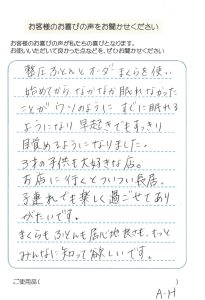 お客様のお喜びの声をお聞かせください
お客様のお喜びの声が私たちの喜びとなります。
お使いいただいて良かった点などを、ぜひお聞かせください
整圧ふとんとオーダーまくらを使い
始めてからなかなか眠れなかった
ことがウソのようにすぐに眠れる
ようになり早起きでもすっきり
目覚めるようになりました。
3才の子供も大好きな店。
お店に行くとついつい長居。
子連れでも楽しく過ごせてあり
がたいです。
まくらもふとんも居心地良さも、もっと
みんなに知って欲しいです。
ご使用品( )
A-H